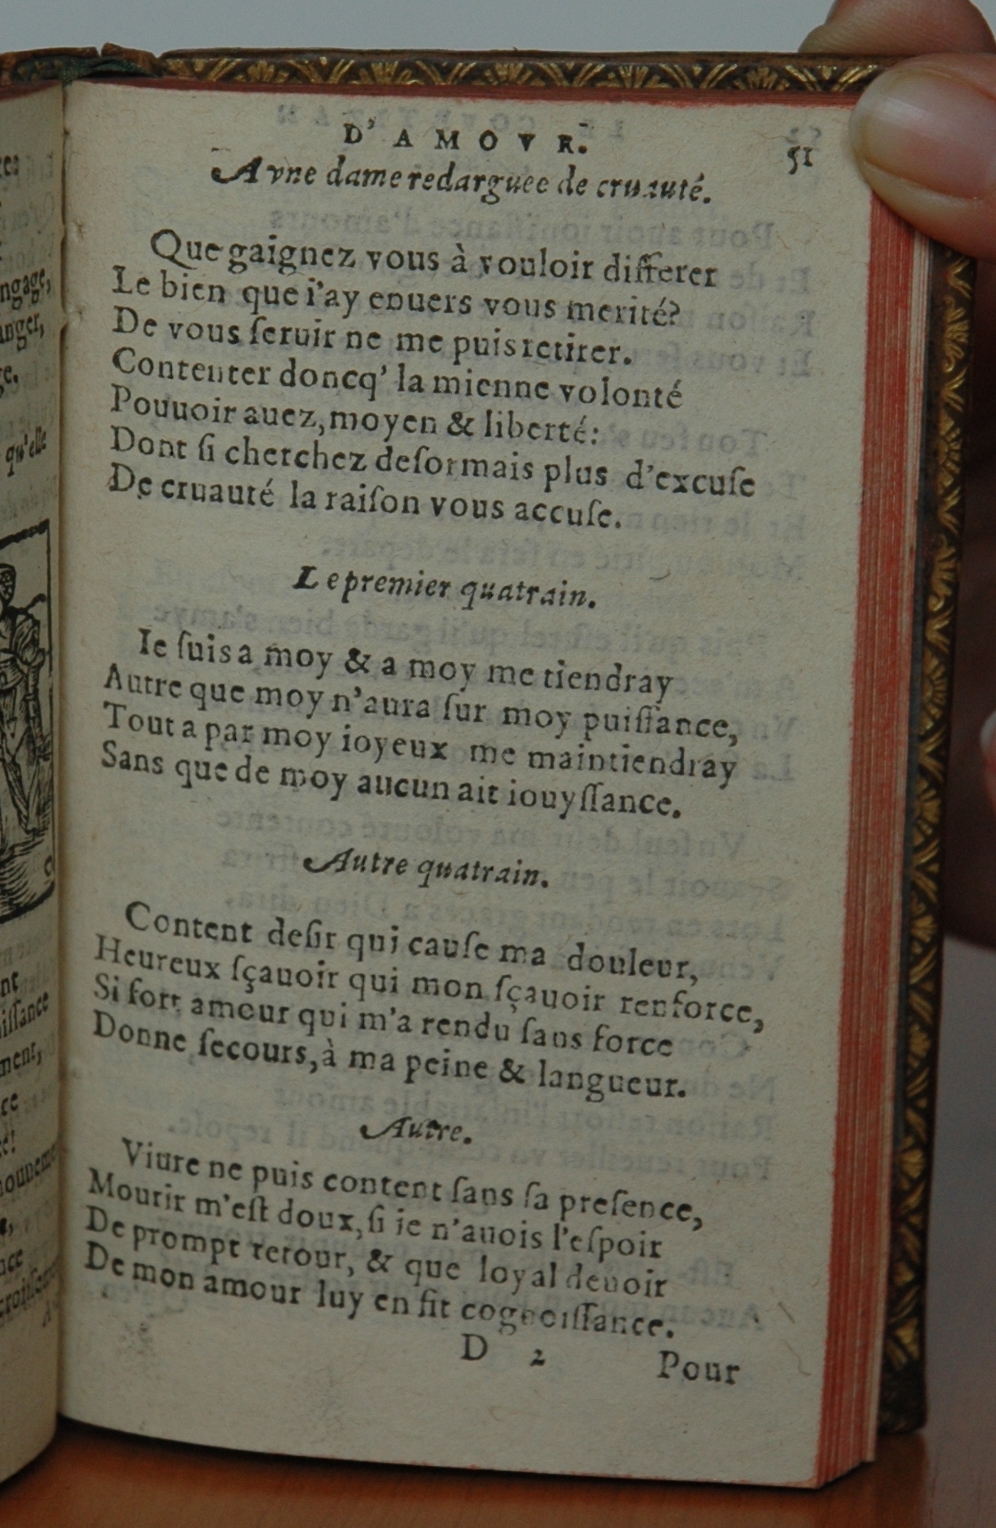 D' AMOVR.
51
A vne dame redarguee de cruauté.
Que gaignez vous à vouloir differer
Le bien que i'ay enuers vous merité?
De vous ſeruir ne me puis retirer.
Contenter doncq' la mienne volonté
Pouuoir auez, moyen & liberté:
Dont ſi cherchez deſormais plus d'excuſe
De cruauté la raiſon vous accuſe.
Le premier quatrain.
Ie ſuis a moy & a moy me tiendray
Autre que moy n'aura ſur moy puiſſance,
Tout a par moy ioyeux me maintiendray
Sans que de moy aucun ait iouyſſance.
Autre quatrain.
Content deſir qui cauſe ma douleur,
Heureux ſçauoir qui mon ſçauoir renforce,
Si fort amour qui m'a rendu ſans force
Donne ſecours, à ma peine & langueur.
Autre.
Viure ne puis content ſans ſa preſence,
Mourir m'eſt doux, ſi ie n'auois l'eſpoir
De prompt retour, & que loyal deuoir
De mon amour luy en fit cognoiſſance.
D 2
Pour
ngage,
anger,
qu'elle